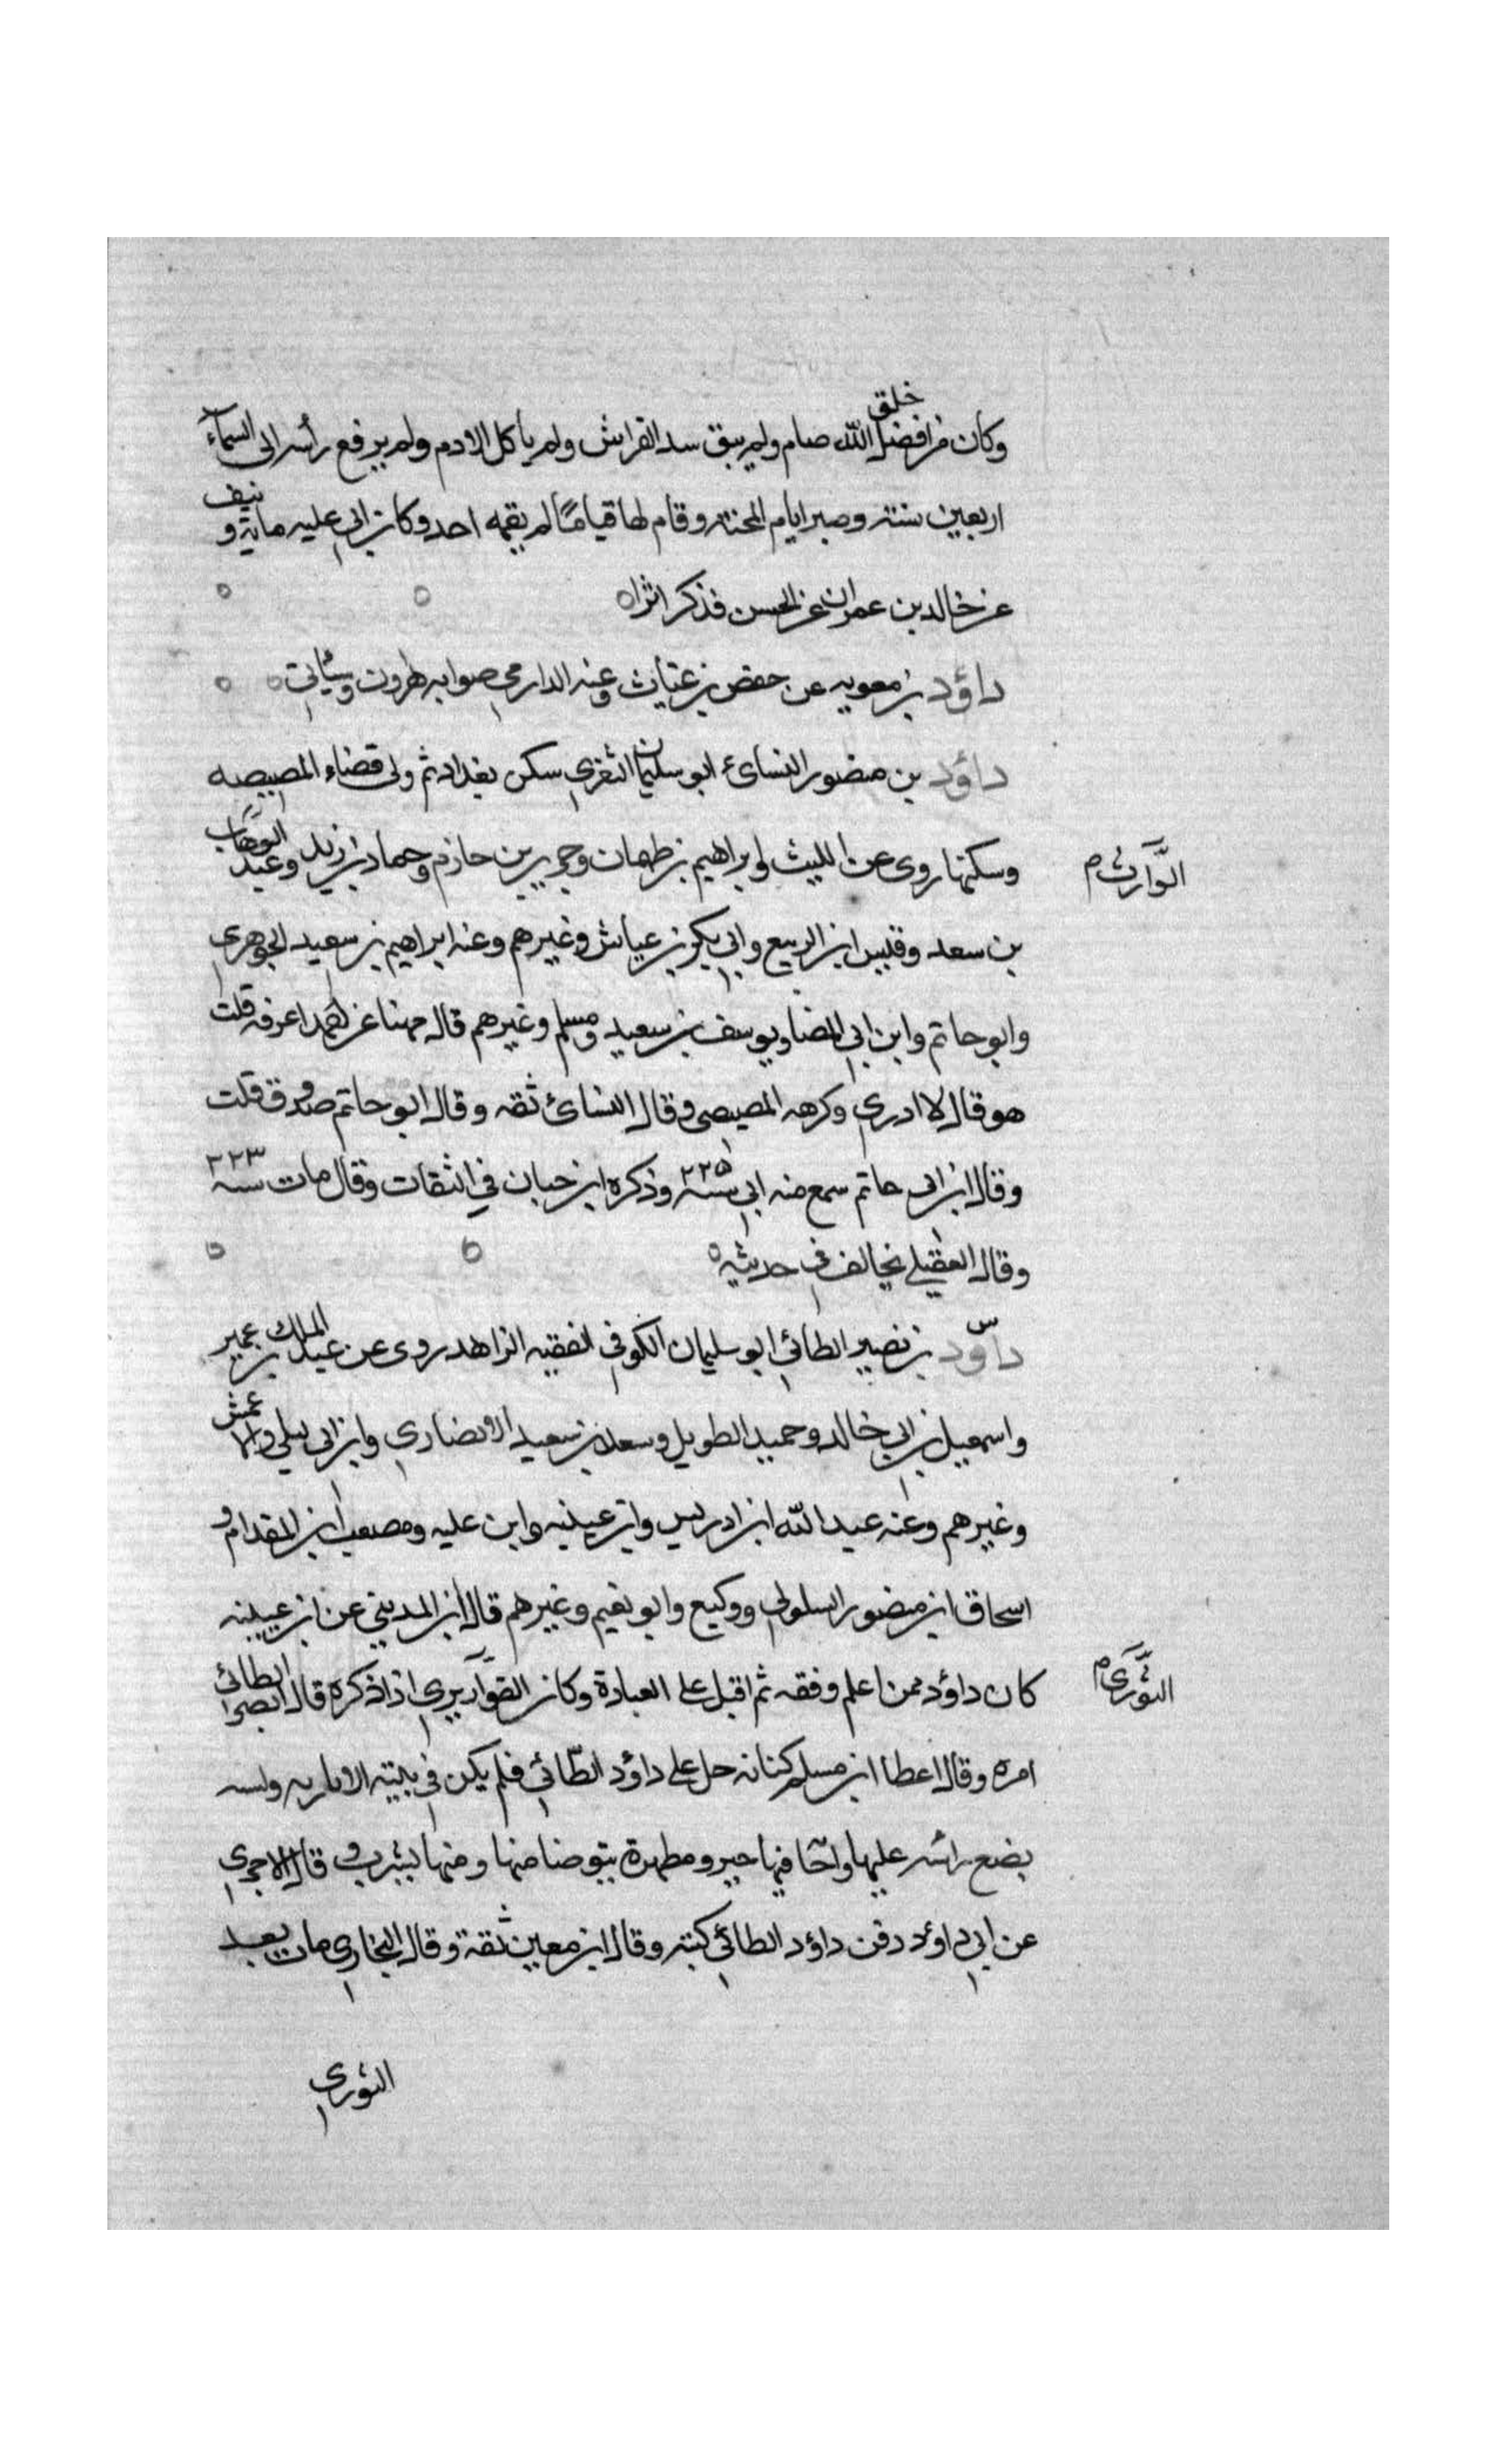 وكان من افضل خلق الله صام ولم يبق سد الفراش ولم ياكل الادم ولم يرفع رأسه الى السماء
اربعين سنة وصبر ايام المحنة وقام لها قياما لم يقمه احد وكان ابى عليه ماية ونيف
عن خالد بن عمران عن الحسن فذكر اثرا
داؤد بن معويه عن حفص بن غياث وعنه الدارمي صوابه هرون وسيأتي
داؤد بن منصور النسائ ابو سليمان الثغري سكن بغداد ثم ولى قضاء المصيصه
وسكنها روى عن الليث وابراهيم بن طهمان وجرير بن حازم وحماد بن زيد وعبد الوهاب
الوارث م
بن سعد وقيس ابن الربيع وابي بكر بن عياش وغيرهم وعنه ابراهيم بن سعيد الجوهري
وابو حاتم وابن ابي المضا ويوسف بن سعيد ومسلم وغيرهم قال مهنا عن احمد اعرفه قلت
هو قال لا ادري وكرهه المصيصى وقال النسائ ثقه وقال ابو حاتم صدوق قلت
وقال ابن ابى حاتم سمع منه ابي سنه ٢٢٥ وذكره ابن حبان في الثقات وقال مات سنه ٢٢٣
وقال العقيلي يخالف في حديثه
س
داؤد بن نصير الطائي ابو سليمان الكوفي الفقيه الزاهد روى عن عبد الملك بن عمير
واسمعيل بن ابي خالد وحميد الطويل وسعد بن سعيد الانصاري وابن ابى ليلى والاعمش
وغيرهم وعنه عبد الله ابن ادريس وابن عيينه وابن عليه ومصعب ابن المقدام و
اسحاق ابن منصور السلولي ووكيع وابو نعيم وغيرهم قال ابن المديني عن ابن عيينه
كان داؤد ممن اعلم وفقه ثم اقبل على العبادة وكان القواريري اذا ذكره قال ابصر الطائي
الثوري م
امره وقال اعطا ابن مسلم كنا ندحل على داؤد الطائي فلم يكن في بيته الا باريه ولسه
يضع رأسه عليها واجا فيها خبز ومطهرة يتوضا منها ومنها يشرب وقال الاجري
عن ابي داؤد دفن داؤد الطائي كتبه وقال ابن معين ثقة وقال البخاري مات بعد
الثورى